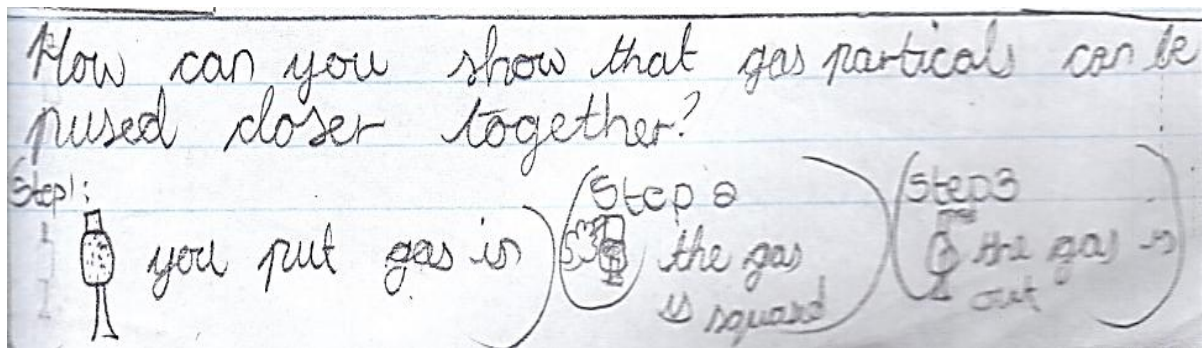 How can you show that gas particals can be
pused closer together?
Step1:
you put gas in
Step 2
the gas
is squasd
Step3
the gas is
out